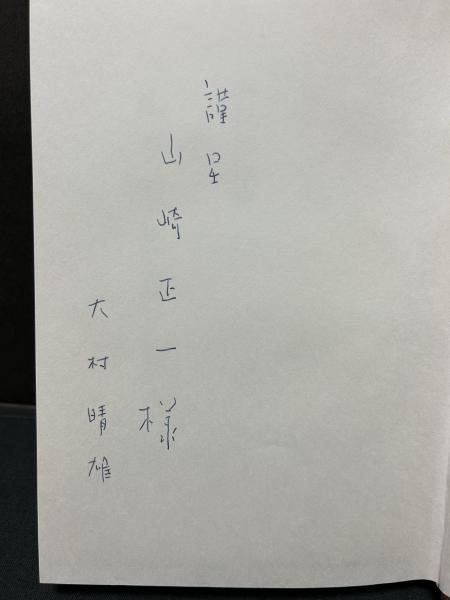 謹呈
山崎正一様
大村晴雄